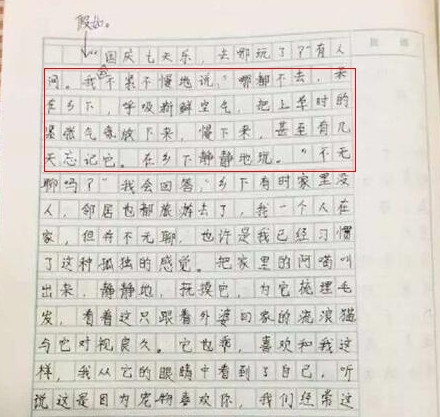 假如。
“国庆七天乐,去哪玩了?”有人
问。我不紧不慢地说,“哪都不去,呆
在乡下,呼吸新鲜空气,把上学时的
紧张气氛放下来,慢下来,甚至有几
天忘记它。在乡下静静地玩。”“不无
聊吗?”我会回答,“乡下有时家里没
人,邻居也都旅游去了,我一个人在
家,但并不无聊,也许是我已经习惯
了这种孤独的感觉。把家里的阿喵叫
出来,静静地,抚摸它,为它梳理毛
发,看着这只跟着外婆回家的流浪猫
与它对视良久。它也乖,喜欢和我这
样,我从它的眼睛中看到了自己。听
说这是因为宠物喜欢你,我们经常这